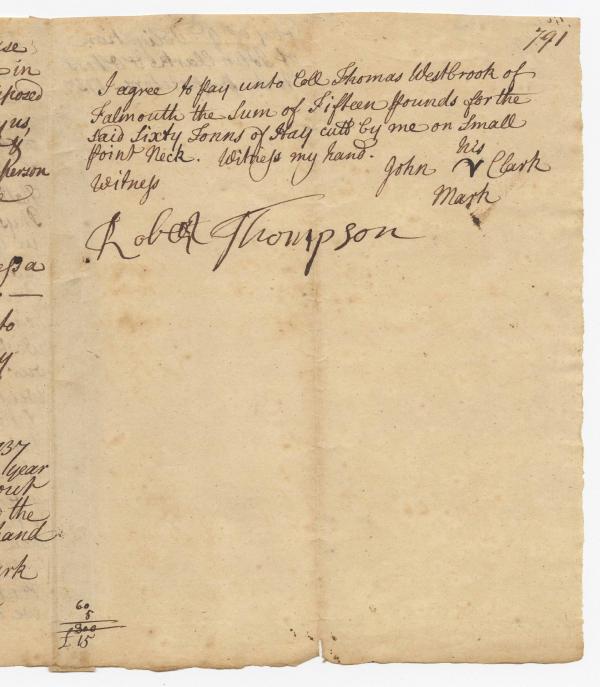 791
I agree to pay unto Coll Thomas Westbrook of
Falmouth the Sum of Fifteen pounds for the
said Sixty Tonns of Hay cutt by me on Small
point Neck. Witness my hand.
his
John Clark
Mark
Witness
Robert Thompson
in
us,
to
37
year
out
the
hand
60
5
300
£ 15